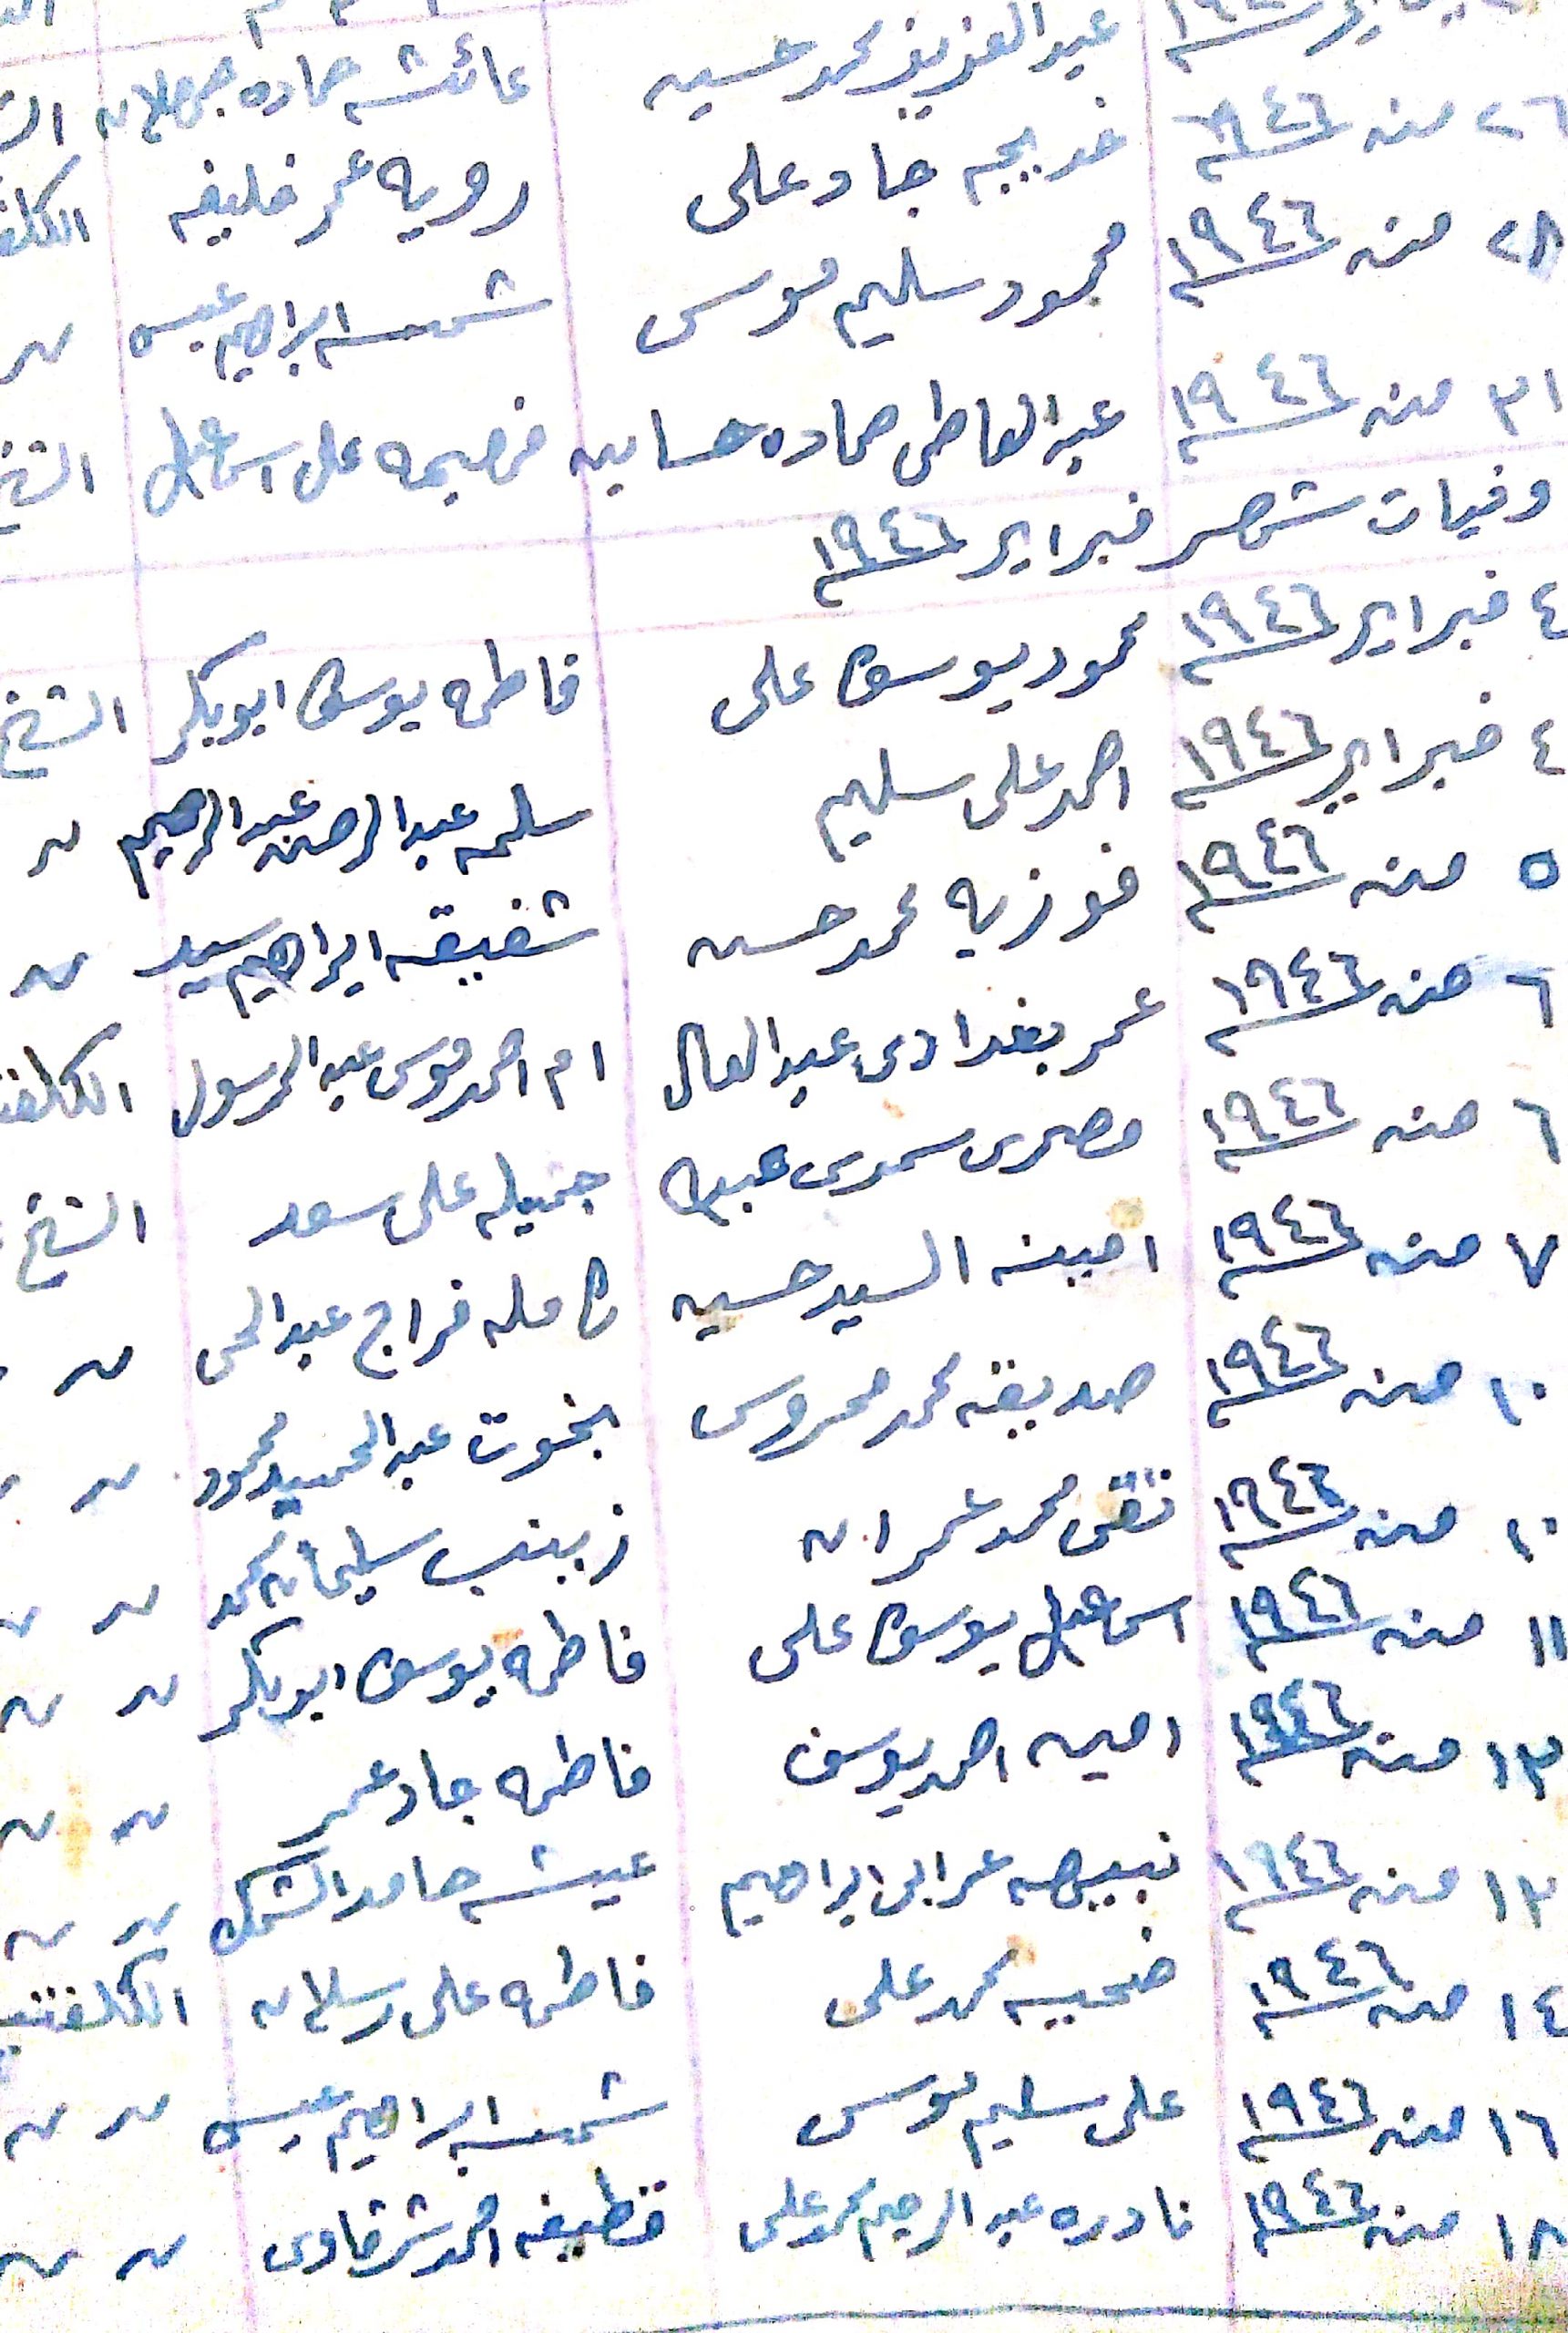 عبد العزيز محمد حسين عائشه حماده
٢٦ منه ١٩٤٦ خديجه جاد على روميه عمر خليفه
٢٨ منه ١٩٤٦ محمود سليم موسى شمسه ابراهيم عيسى 〃
٣١ منه ١٩٤٦ عبد العاطى حماده حسانين فهيمه على اسماعيل الشيخ
وفيات شهر فبراير ١٩٤٦
٤ فبراير ١٩٤٦ محمود يوسف على فاطمه يوسف ابو بكر الشيخ
٤ فبراير ١٩٤٦ احمد على سليم سلمه عبد الرحمن عبد الرحيم 〃
٥ منه ١٩٤٦ فوزيه محمد حسن شفيقه ابراهيم سيد 〃
٦ منه ١٩٤٦ عمر بغدادى عبد العال ام احمد موسى عبد الرسول
٦ منه ١٩٤٦ مصرى جميله على سعد الشيخ
٧ منه ١٩٤٦ امينه السيد حسين كامله فراج عبد الحى 〃
١٠ منه ١٩٤٦ صديقه محمد محروس بخوت عبد الحميد محمود 〃 〃
١٠ منه ١٩٤٦ تقى محمد عمران زينب سليمان محمد 〃 〃
١١ منه ١٩٤٦ اسماعيل يوسف على فاطمه يوسف ابو بكر 〃 〃
١٣ منه ١٩٤٦ امين احمد يوسف فاطمه جاد عمر 〃 〃
١٣ منه ١٩٤٦ نبيهه عرابى ابراهيم عيشه حامد 〃 〃
١٤ منه ١٩٤٦ محمد على فاطمه على رسلان
١٦ منه ١٩٤٦ على سليم موسى شمسه ابراهيم عيسى 〃 〃
١٨ منه ١٩٤٦ نادره عبد الرحيم محمد على نظيفه احمد شرقاوى 〃 〃